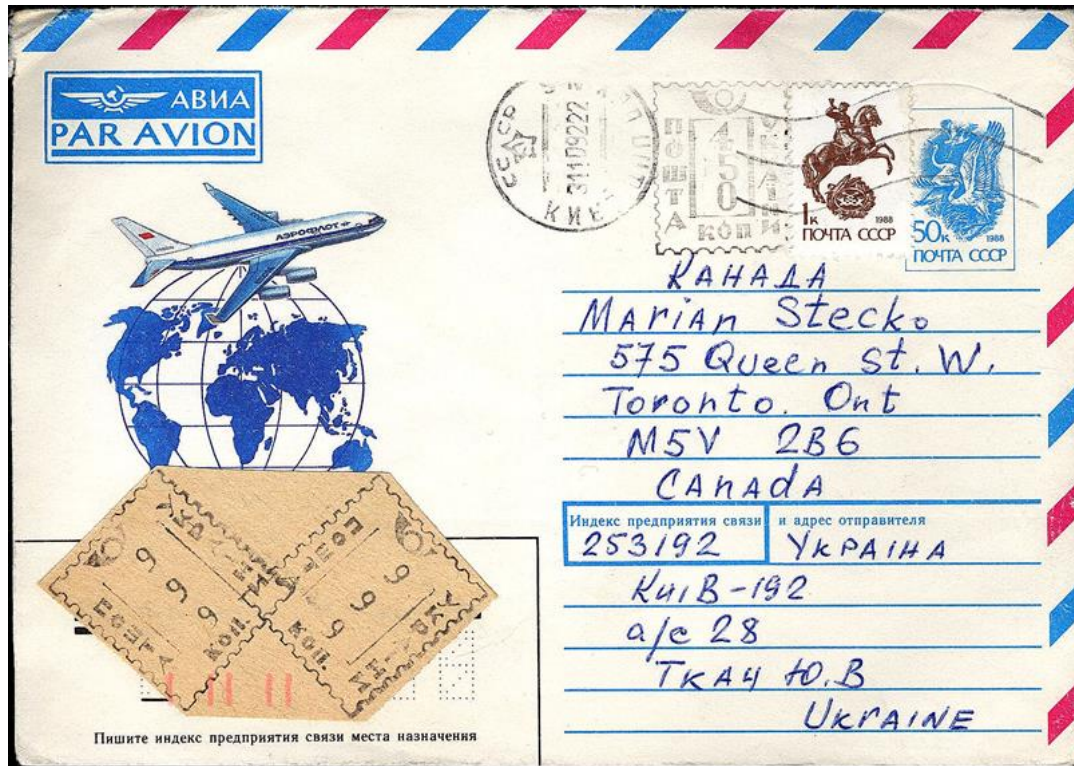 АВИА
PAR AVION
АЭРОФЛОТ
СССР
КИЕВ
3110922222
ПОШТА
450
КОП
1к 1988
ПОЧТА СССР
50к 1988
ПОЧТА СССР
КАНАДА
Marian Stecko
575 Queen St. W.
Toronto. Ont
M5V 2B6
Canada
Индекс предприятия связи и адрес отправителя
253192 УКРАЇНА
Київ-192
а/с 28
Ткач Ю.В
UKRAINE
ПОШТА
999
коп.
ПОШТА
999
коп.
Пишите индекс предприятия связи места назначения